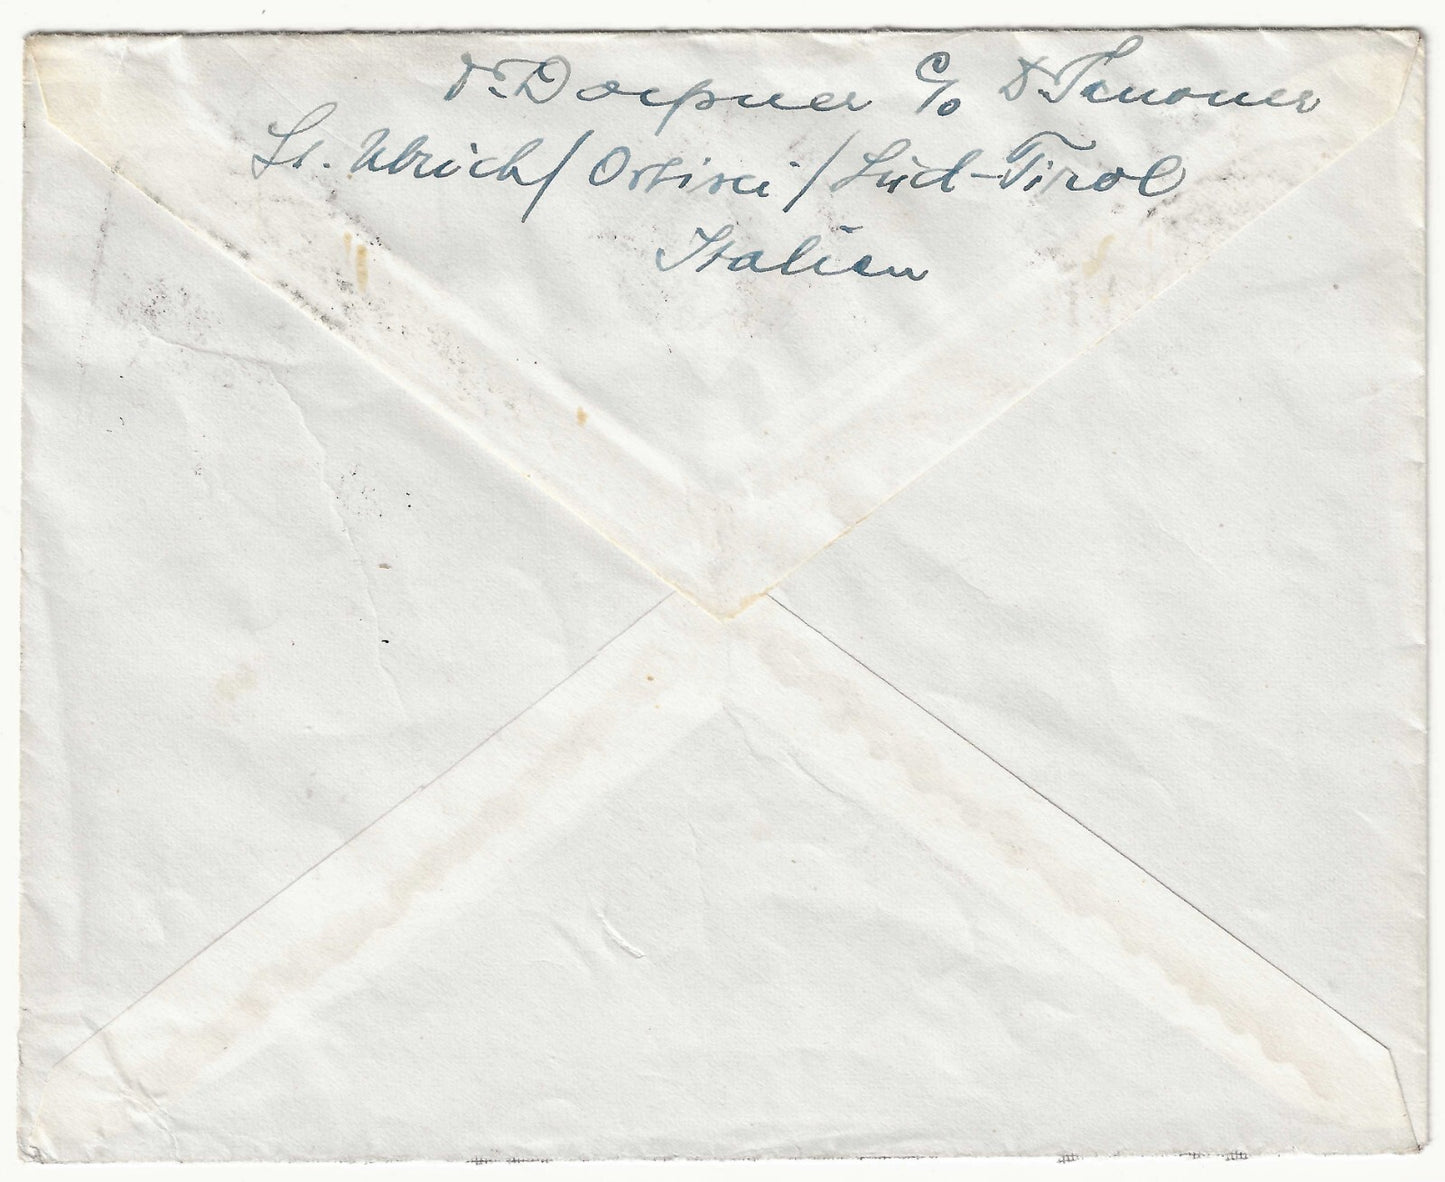 Dr. Doepner c/o Dr. Tenoner
St. Ulrich / Ortisei / Süd-Tirol
Italien